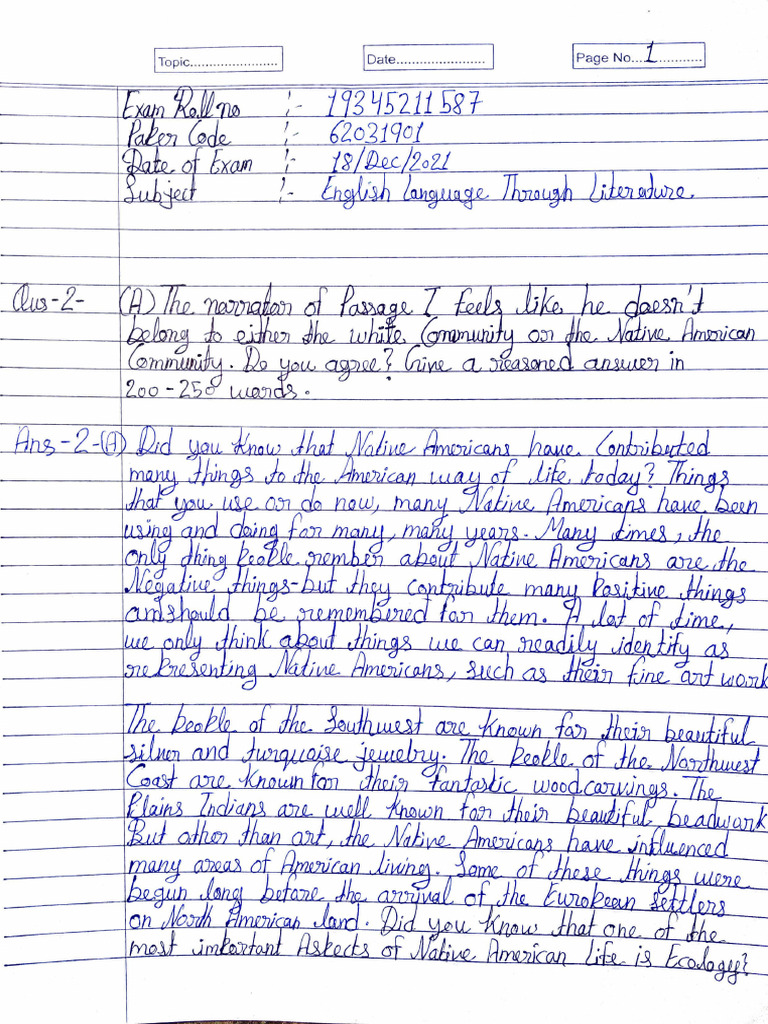 Topic........................ Date........................ Page No...1............
Exam Roll no :- 19345211587
Paper Code :- 62031901
Date of Exam :- 18/Dec/2021
Subject :- English Language Through Literature.
Qus-2- (A) The narrator of Passage I feels like he doesn't
belong to either the white Community or the Native American
Community. Do you agree? Give a reasoned answer in
200-250 words.
Ans-2-(A) Did you know that Native Americans have Contributed
many things to the American way of life today? Things
that you use or do now, many Native Americans have been
using and doing for many, many years. Many times, the
only thing people rember about Native Americans are the
Negative things-but they contribute many positive things
and should be remembered for them. A lot of time,
we only think about things we can readily identify as
representing Native Americans, such as their fine art work
The people of the Southwest are known for their beautiful
silver and turquoise jewelry. The people of the Northwest
Coast are known for their fantastic woodcarvings. The
Plains Indians are well known for their beautiful beadwork
But other than art, the Native Americans have influenced
many areas of American living. Some of these things were
begun long before the arrival of the European settlers
on North American land. Did you know that one of the
most important Aspects of Native American Life is Ecology?